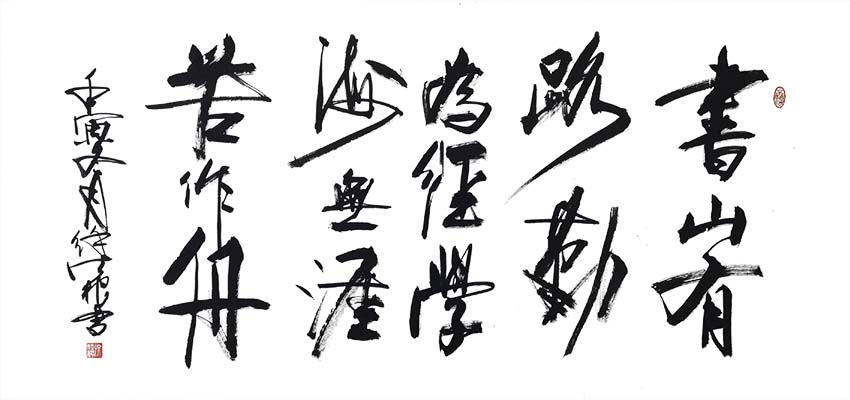 書山有
路勤
為徑學
海無涯
苦作舟
壬寅夏月徐書